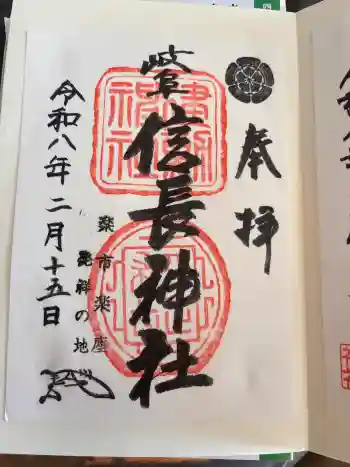 奉拝
岐阜
信長神社
楽市楽座
発祥の地
令和八年二月十五日